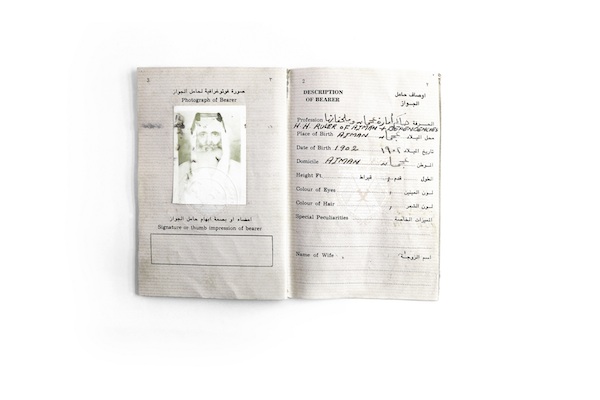 2
صورة فوتوغرافية لحامل الجواز
Photograph of Bearer
امضاء او بصمة ابهام حامل الجواز
Signature or thumb impression of bearer
DESCRIPTION OF BEARER
اوصاف حامل الجواز
Profession
H. H. RULER OF AJMAN & DEPENDENCIES
Place of Birth AJMAN عجمان محل الميلاد
Date of Birth 1902 ١٩٠٢ تاريخ الميلاد
Domicile AJMAN عجمان الموطن
Height Ft. قدم قيراط الطول
Colour of Eyes لون العينين
Colour of Hair لون الشعر
Special Peculiarities الميزات الخاصة
Name of Wife اسم الزوجة